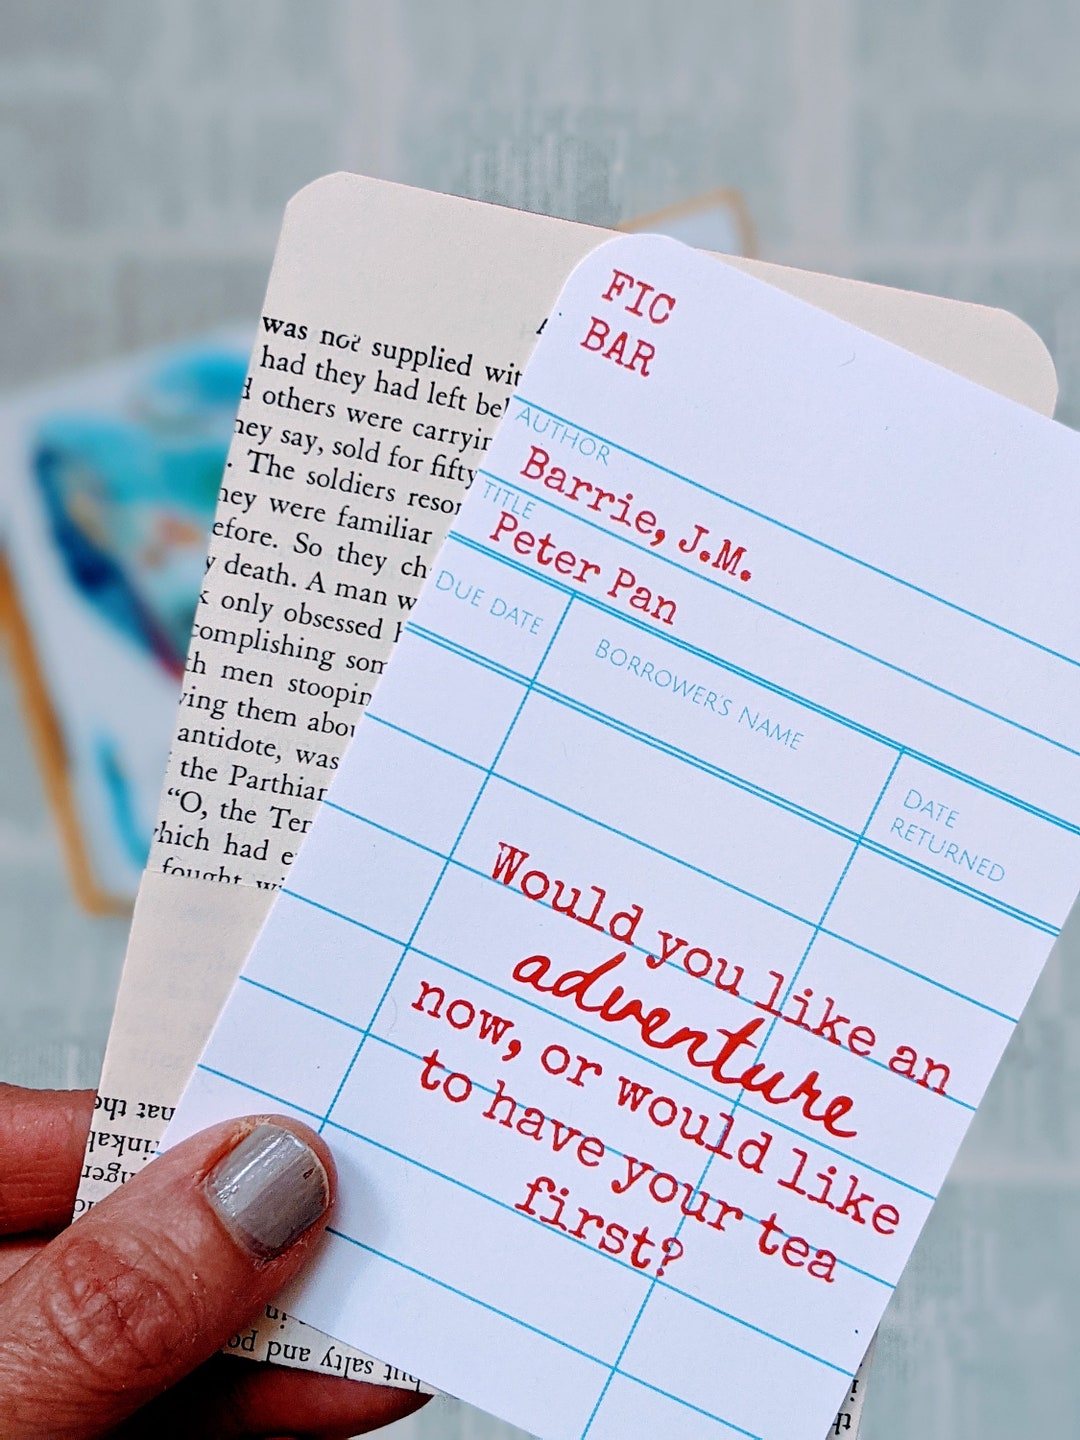 FIC
BAR
AUTHOR
Barrie, J.M.
TITLE
Peter Pan
DUE DATE
BORROWER'S NAME
DATE
RETURNED
Would you like an
adventure
now, or would like
to have your tea
first?
was not supplied wit
had they had left bel
others were carryin
hey say, sold for fifty
. The soldiers resor
hey were familiar
efore. So they ch
y death. A man w
k only obsessed h
complishing som
th men stoopin
ving them abou
antidote, was
the Parthian
“O, the Ter
which had e
fought wi
hat the
but salty and